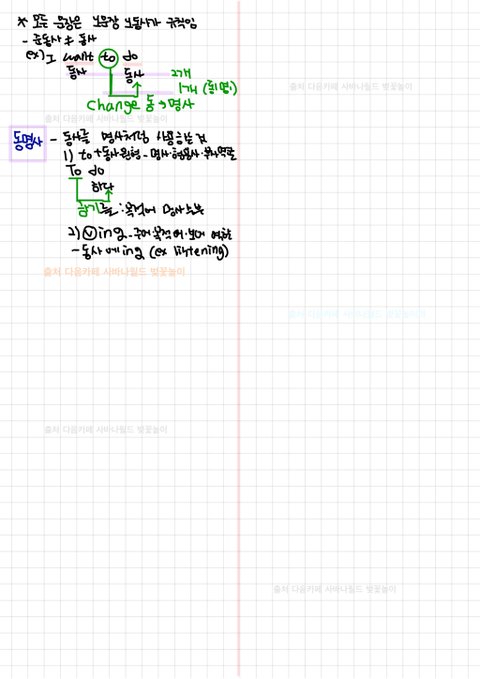 * 모든 문장은 노문장 노동사가 규칙임
- 준동사 ≠ 동사
ex) I want to do
동사 동사 2개
1개 (동1명1)
출처 다음카페 사바나월드 벚꽃놀이
change 동→명사
출처 다음카페 사바나월드 벚꽃놀이
동명사 - 동사를 명사처럼 사용하는 것
1) to+동사원형 - 명사·형용사·부사역할
To do
하다
하기를 : 목적어 명사
2) ⓥing - 주어·목적어·보어 역할
- 동사에 ing (ex listening)
출처 다음카페 사바나월드 벚꽃놀이
출처 다음카페 사바나월드 벚꽃놀이
출처 다음카페 사바나월드 벚꽃놀이
출처 다음카페 사바나월드 벚꽃놀이